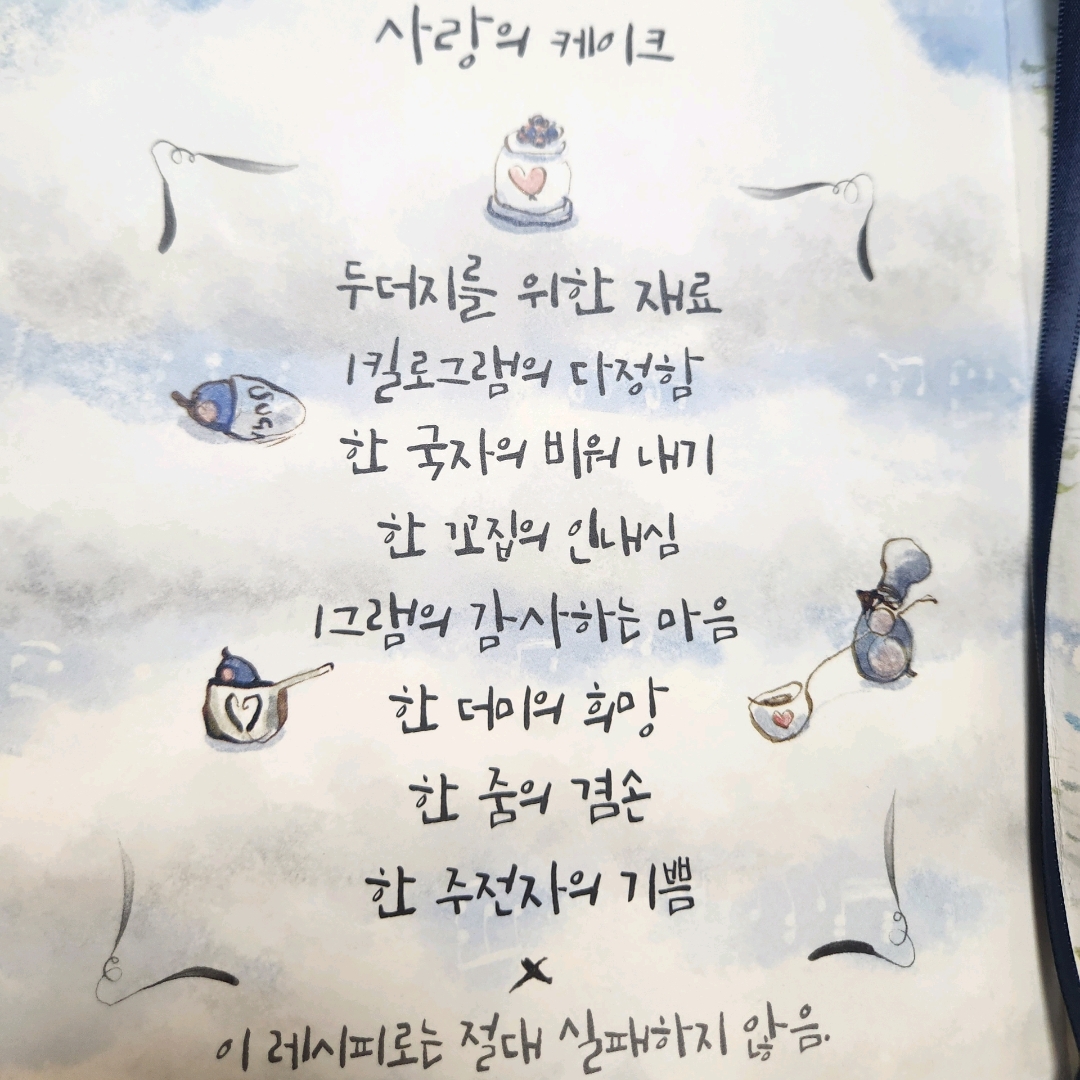 사랑의 케이크
두더지를 위한 재료
1킬로그램의 다정함
한 국자의 비워 내기
한 꼬집의 인내심
1그램의 감사하는 마음
한 더미의 희망
한 줌의 겸손
한 주전자의 기쁨
x
이 레시피로는 절대 실패하지 않음.